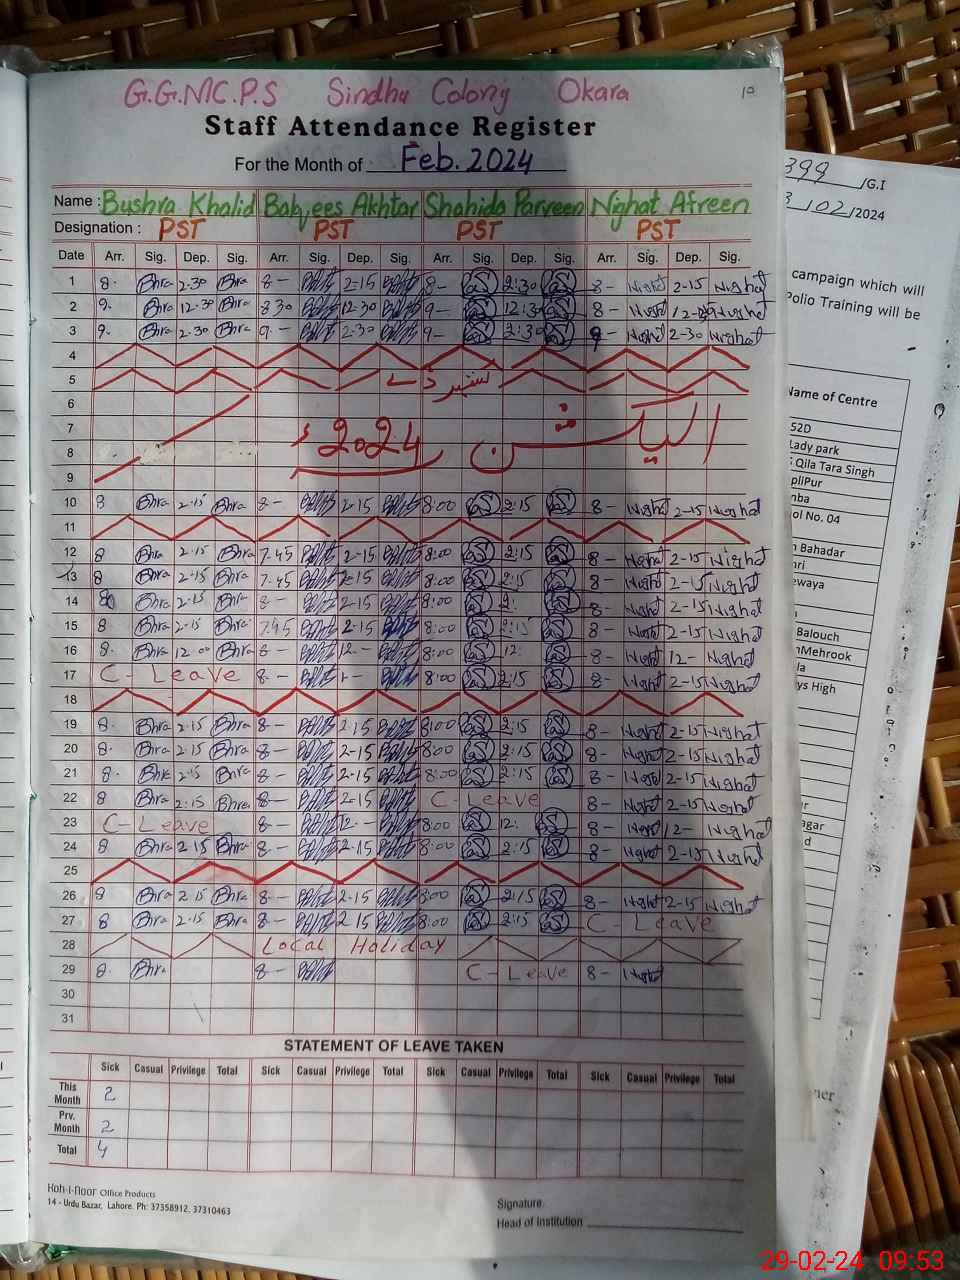 G.G.M.C.P.S Sindhu Colony Okara
10
Staff Attendance Register
For the Month of Feb. 2024
Name : Bushra Khalid Shahida Parveen Nighat Afreen
Designation : PST PST PST PST
Date Arr. Sig. Dep. Sig. Arr. Sig. Dep. Sig. Arr. Sig. Dep. Sig. Arr. Sig. Dep. Sig.
1 8. Bhra 2-30 Bhra 8- 2-15 8- 2:30 8- Night 2-15 Nighat
2 9. Bhra 12-30 Bhra 8 30 12-30 9- 12:30 8- Night Nighat
3 9. Bhra 2-30 Bhra 9- 2-30 9- 2:30 9- Night 2-30 Nighat
4
5
6
7 الیکشن 2024ء
8
9
10 8 Bhra 2-15 Bhra 8- 2-15 8:00 2:15 8- Night 2-15 Nighat
11
12 8 Bhra 2-15 Bhra 7.45 2-15 8:00 2:15 8- Night 2-15 Nighat
13 8 Bhra 2-15 Bhra 7.45 2-15 8:00 2:15 8- Night 2-15 Nighat
14 8 Bhra 2-15 Bhra 8- 2-15 8:00 2: 8- Night 2-15 Nighat
15 8 Bhra 2-15 Bhra 7.45 2-15 8:00 2:15 8- Night 2-15 Nighat
16 8. Bhra 12 00 Bhra 8- 12- 8:00 12: 8- Night 12- Nighat
17 C-Leave 8- 8:00 2:15 8- Night 2-15 Nighat
18
19 8. Bhra 2-15 Bhra 8- 2-15 8:00 2:15 8- Night 2-15 Nighat
20 8. Bhra 2-15 Bhra 8- 2-15 8:00 2:15 8- Night 2-15 Nighat
21 8. Bhra 2-15 Bhra 8- 2-15 8:00 2:15 8- Night 2-15 Nighat
22 8 Bhra 2:15 Bhra 8- 2-15 C-Leave 8- Night 2-15 Nighat
23 C-Leave 8- 12- 8:00 12: 8- Night 12- Nighat
24 8 Bhra 2-15 Bhra 8- 2-15 8:00 2:15 8- Night 2-15 Nighat
25
26 8 Bhra 2-15 Bhra 8- 2-15 8:00 2:15 8- Night 2-15 Nighat
27 8 Bhra 2-15 Bhra 8- 2 15 8:00 2:15 C-Leave
28 Local Holiday
29 8. Bhra 8- C-Leave 8- Night
30
31
STATEMENT OF LEAVE TAKEN
Sick Casual Privilege Total Sick Casual Privilege Total Sick Casual Privilege Total Sick Casual Privilege Total
This Month 2
Prv. Month 2
Total 4
Koh-I-Noor Office Products
14 - Urdu Bazar, Lahore. Ph: 37358912, 37310463
Signature
Head of Institution
399 /G.I
/02/2024
campaign which will
Polio Training will be
Name of Centre
52D
Lady park
Qila Tara Singh
pliPur
nba
ol No. 04
Bahadar
nri
ewaya
Balouch
nMehrook
la
ys High
ur
agar
d
ner
29-02-24 09:53